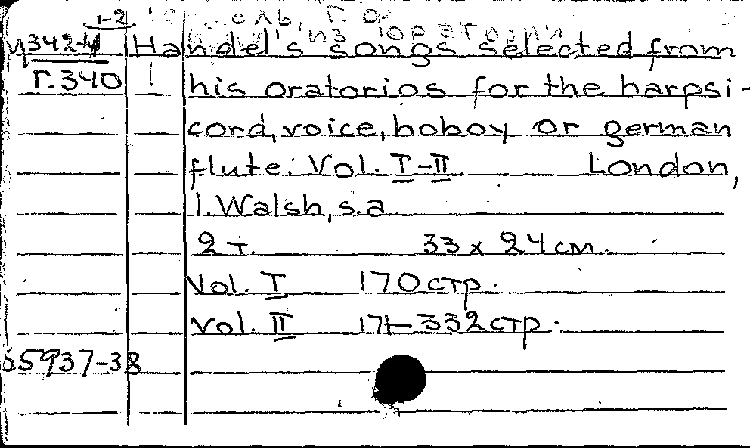 1-2
342-4 Handel's songs selected from
Г.340 his oratorios for the harpsi-
cord, voice, hoboy or german
flute. Vol. I-II London,
I. Walsh, s.a
2 т. 33 x 24 см.
Vol. I 170 стр.
Vol. II 171-332 стр.
55937-38